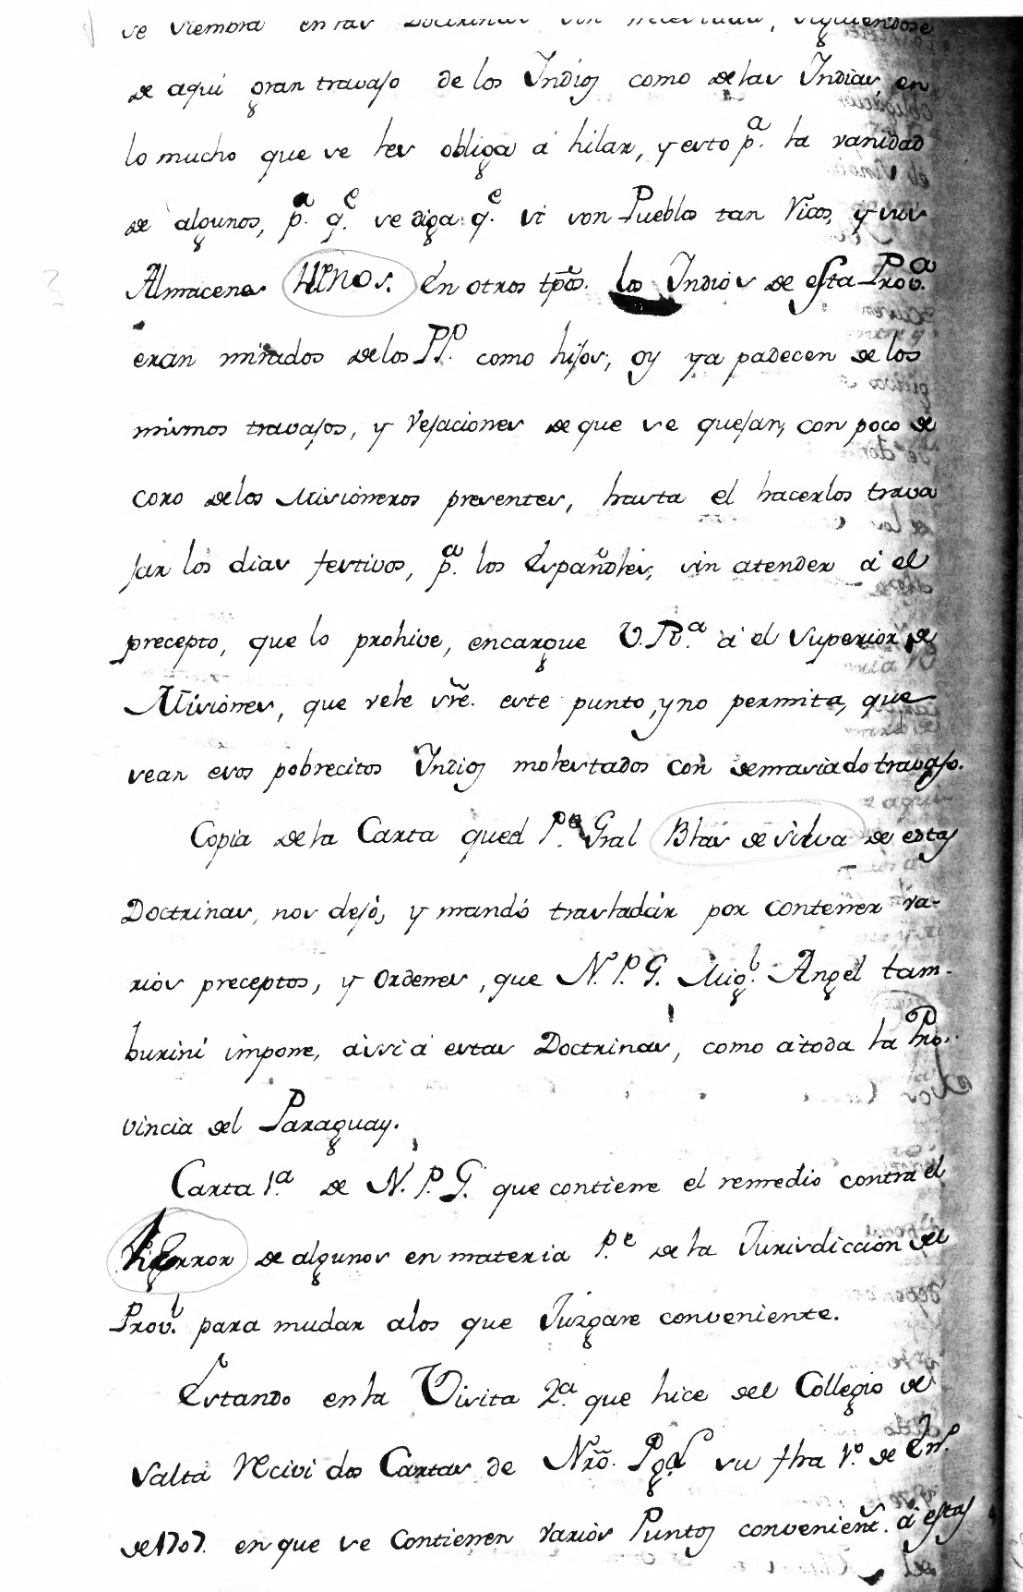 se siembra en las Doctrinas con , siguiendose
de aqui gran travajo de los Indios como delas Indias, en
lo mucho que se les obliga á hilar, y esto p.ª la vanidad
de algunos, p.ª q.e se diga q.e si son Pueblos tan Ricos, y sus
Almacenes llenos. En otros tpõs. los Indios de esta Prov.ª
eran mirados delos PP.s como hijos; oy ya padecen de los
mismos travajos, y vejaciones de que se quejan, con poco de
coro delos Missioneros presentes, hasta el hacerlos trava
jar los dias festivos, p.ª los Españoles, sin atender á el
precepto, que lo prohive, encargue V.Rª á el Superior de
Missiones, que zele sre. este punto, y no permita, que
sean esos pobrecitos Indios molestados con demasiado travajo.
Copia dela Carta que el P.e Gral Blas de Silva de estas
Doctrinas, nos dejó, y mandó trasladar por contener va-
rios preceptos, y Ordenes, que N.P.G. Mig.l Angel tam-
burini impone, assi á estas Doctrinas, como á toda la Pro-
vincia del Paraguay.
Carta 1.ª de N.P.G. que contiene el remedio contra el
Error de algunos en materia P.e de la Jurisdiccion del
Prov.l para mudar alos que Juzgare conveniente.
Estando enla Visita 2.ª que hice del Collegio de
Salta recivi dos Cartas de Nrõ. P. G.l su fha 1.º de En.º
de 1707. en que se contienen varios Puntos convenient. á estas